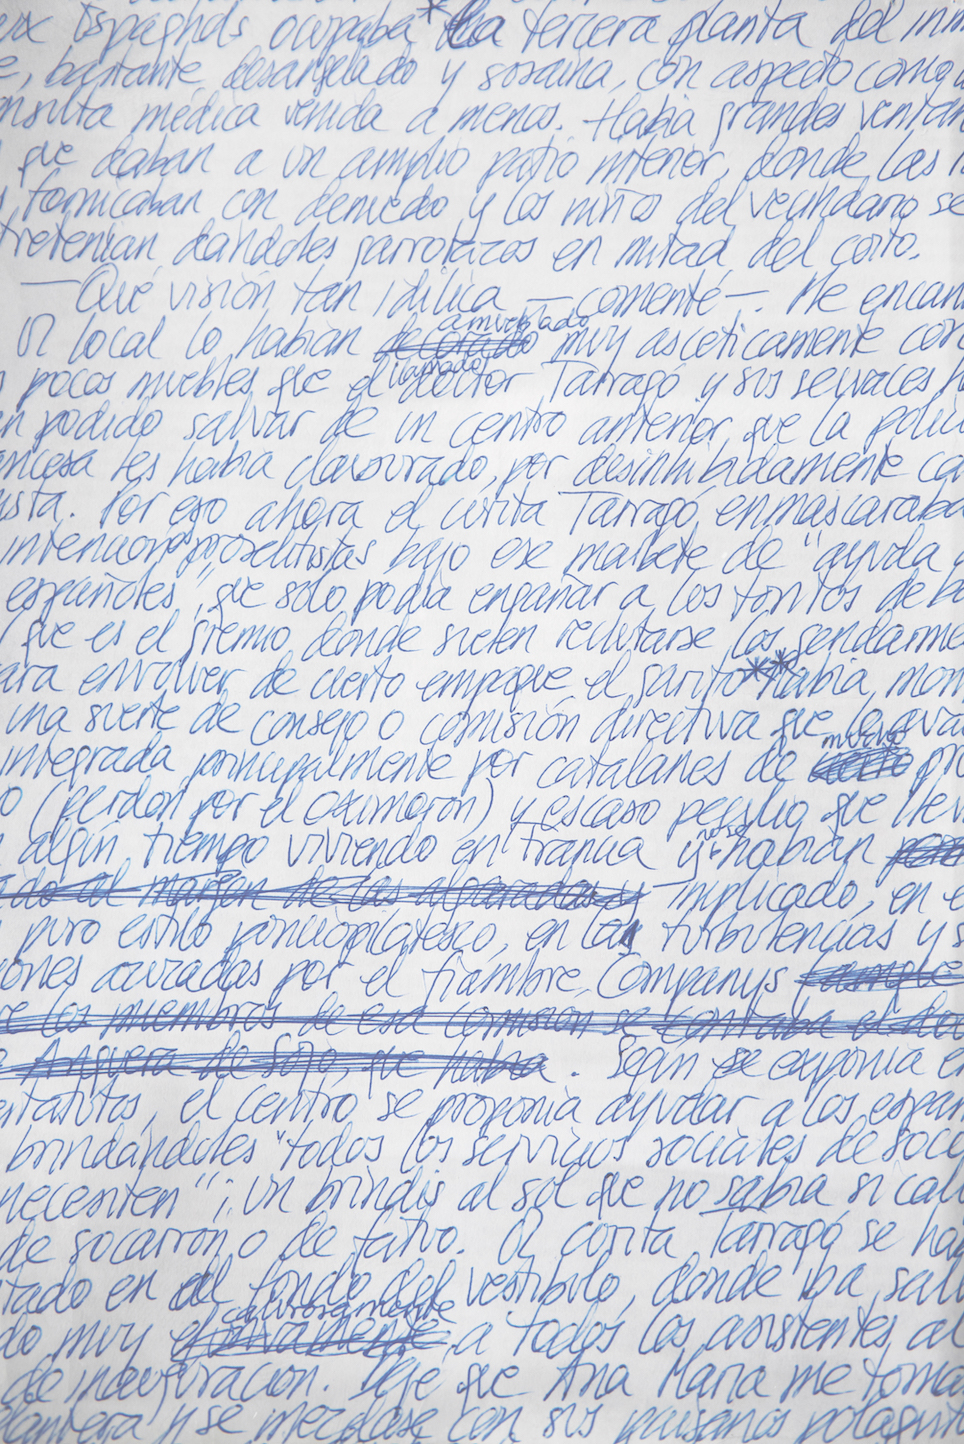 Espagnols ocupaba * la tercera planta del inm
e, bastante desangelado y sosaina, con aspecto como d
nsulta médica venida a menos. Había grandes ventan
que daban a un amplio patio interior, donde las
fornicaban con denuedo y los niños del vecindario se
tretenían dándoles garrotazos en mitad del coito.
—Qué visión tan idílica —comenté—. Me encan
El local lo habían amueblado muy ascéticamente con
s pocos muebles que el llamado doctor Tarragó y sus secuaces h
n podido salvar de un centro anterior que la polic
ancesa les había clausurado, por desinhibidamente ca
ista. Por eso ahora el curita Tarragó enmascaraba
intenciones proselitistas bajo ese marbete de "ayuda a
españoles", que sólo podía engañar a los tontos de b
(que es el gremio donde suelen reclutarse los gendarme
ara envolver de cierto empaque el garito ** había mon
una suerte de consejo o comisión directiva que lo ava
integrada principalmente por catalanes de mucho pro
o (perdón por el oxímoron) y escaso peculio que llev
algún tiempo viviendo en Francia y no se habían
do al margen de las algaradas y implicado, en e
puro estilo principiogatesco, en las turbulencias y s
iones azuzadas por el fiambre Companys
e los miembros de esa comisión se contaba el do
e Anguera de Sojo, que había. Según se exponía en
estatutos, el centro se proponía ayudar a los españ
brindándoles "todos los servicios sociales de soco
necesiten"; un brindis al sol que no sabía si cali
de socarrón o de fatuo. El curita Tarragó se ha
tado en el fondo del vestíbulo, donde iba salu
do muy calurosamente a todos los asistentes al
de inauguración. Dejé que Ana María me toma
lantera y se mezclase con sus paisanos polaquit